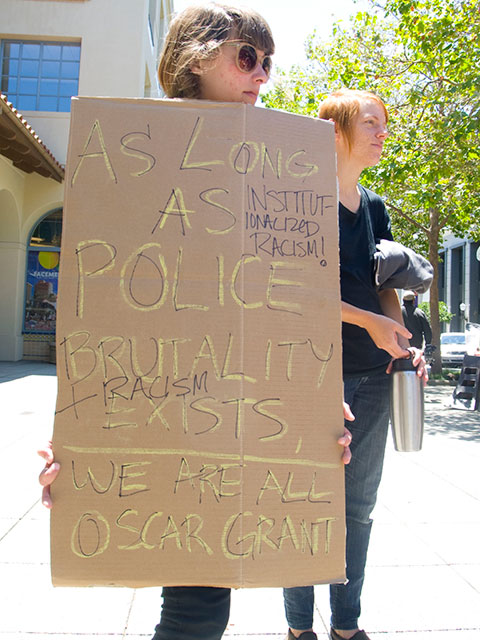 AS LONG
AS
INSTITUT-
IONALIZED
RACISM!
POLICE
BRUTALITY
+ RACISM
EXISTS,
WE ARE ALL
OSCAR GRANT